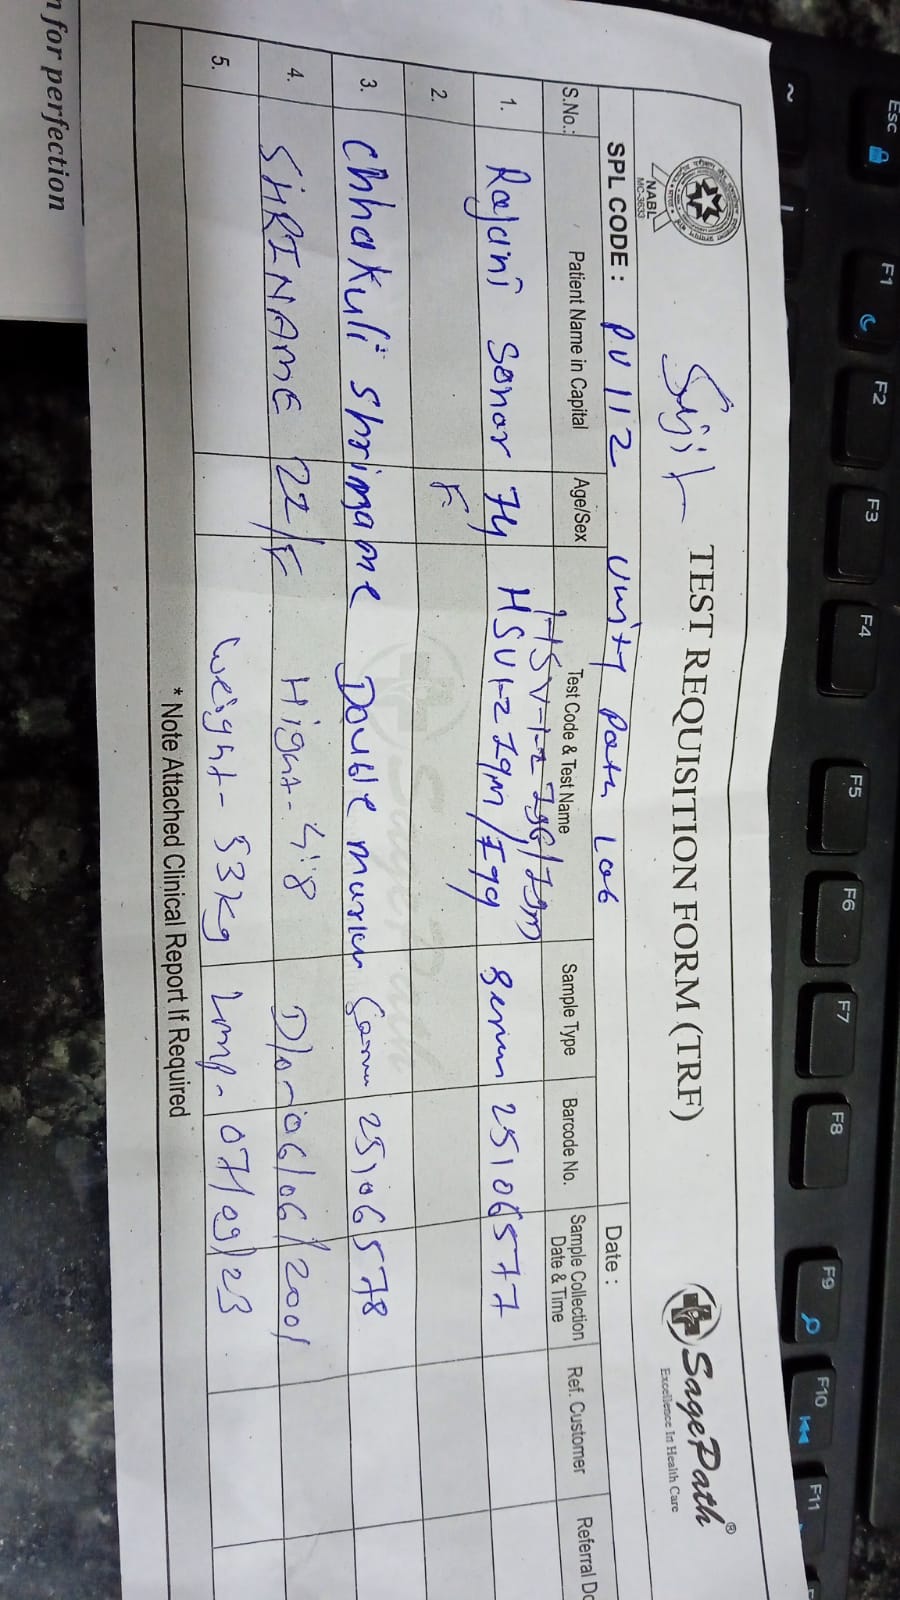 Esc F1 F2 F3 F4 F5 F6 F7 F8 F9 F10 F11
~
NABL
MC-3633
TEST REQUISITION FORM (TRF)
SagePath®
Excellence In Health Care
SPL CODE : PV112 Unity Path Lab Date :
S.No.: Patient Name in Capital Age/Sex Test Code & Test Name Sample Type Barcode No. Sample Collection Date & Time Ref. Customer Referral Do
HSV-1-2 IgG/IgM
1. Rajani Sonar 74 HSV1-2 Igm/Igg Serum 25106577
2. F
3. Chhakuli Shrimane Double marker Serum 25106578
4. SHRINAME 22/F Hight- 4:8 D/o- 06/06/2001
5. Weight- 53kg Lmp- 07/09/23
* Note Attached Clinical Report If Required
SagePath
n for perfection